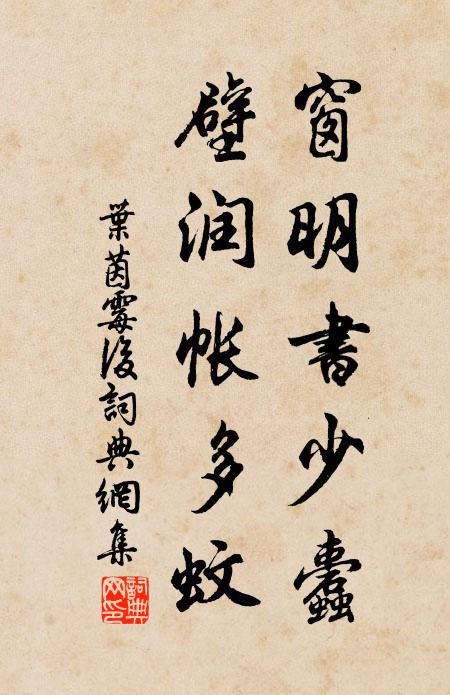 窗明書少蠹
壁润帐多蚊
葉茵霉後詞典網集
詞典网印